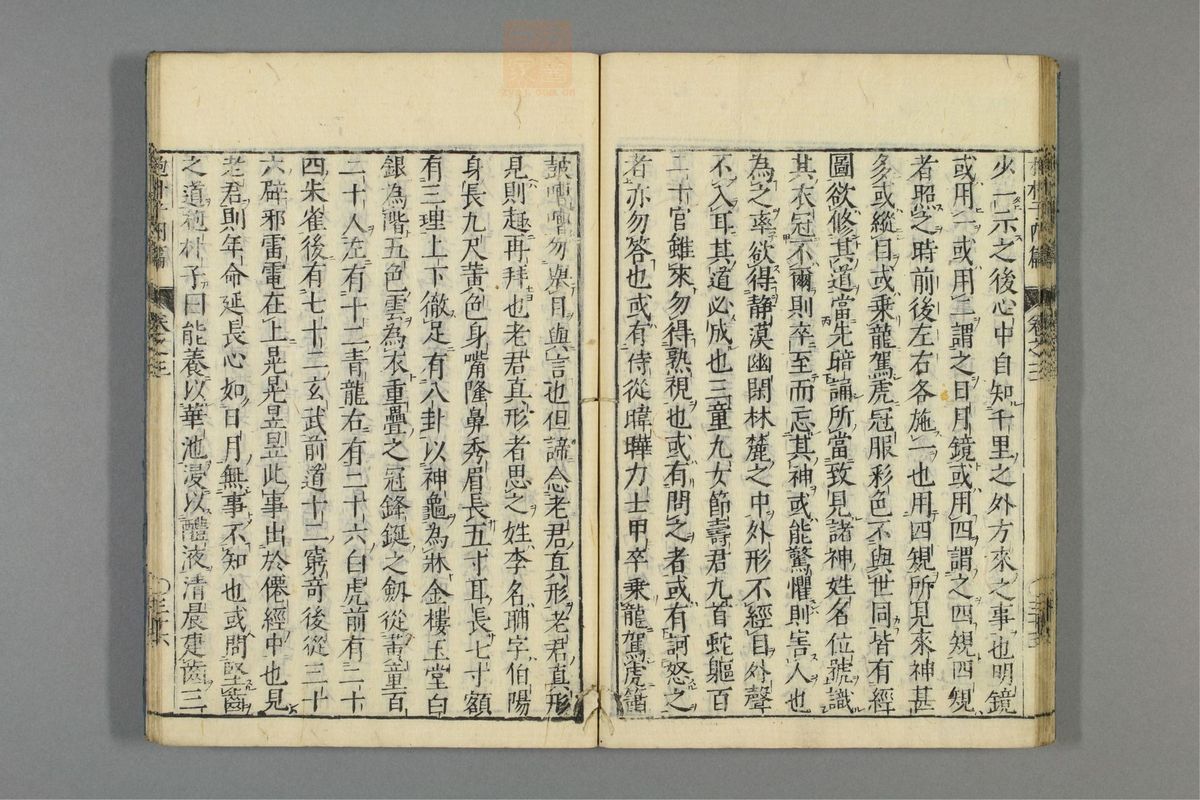 少一示之後心中自知千里之外方來之事也明鏡
或用一或用二謂之日月鏡或用四謂之四規四規
者照之時前後左右各施一也用四規所見來神甚
多或縱目或乘龍駕虎冠服彩色不與世同皆有經
圖欲修其道當先暗誦所當致見諸神姓名位號識
其衣冠不爾則卒至而忘其神或能驚懼則害人也
為之率欲得静漠幽閑林麓之中外形不經目外聲
不入耳其道必成也三童九女節壽君九首蛇軀百
二十官雖來勿得熟視也或有問之者或有訶怒之
者亦勿答也或有侍從暐曄力士甲卒乘龍駕虎簫
鼓嘈嘈勿舉目與言也但諦念老君真形老君真形
見則起再拜也老君真形者思之姓李名聃字伯陽
身長九尺黃色身嘴隆鼻秀眉長五寸耳長七寸額
有三理上下徹足有八卦以神龜為牀金樓玉堂白
銀為階五色雲為衣重疊之冠鋒鋋之劔從黃童百
二十人左有十二青龍右有二十六白虎前有二十
四朱雀後有七十二玄武前道十二窮奇後從三十
六辟邪雷電在上晃晃昱昱此事出於僊經中也見
老君則年命延長心如日月無事不知也或問堅齒
之道抱朴子曰能養以華池浸以醴液清晨建齒三
抱朴子内篇 卷之三 三十六